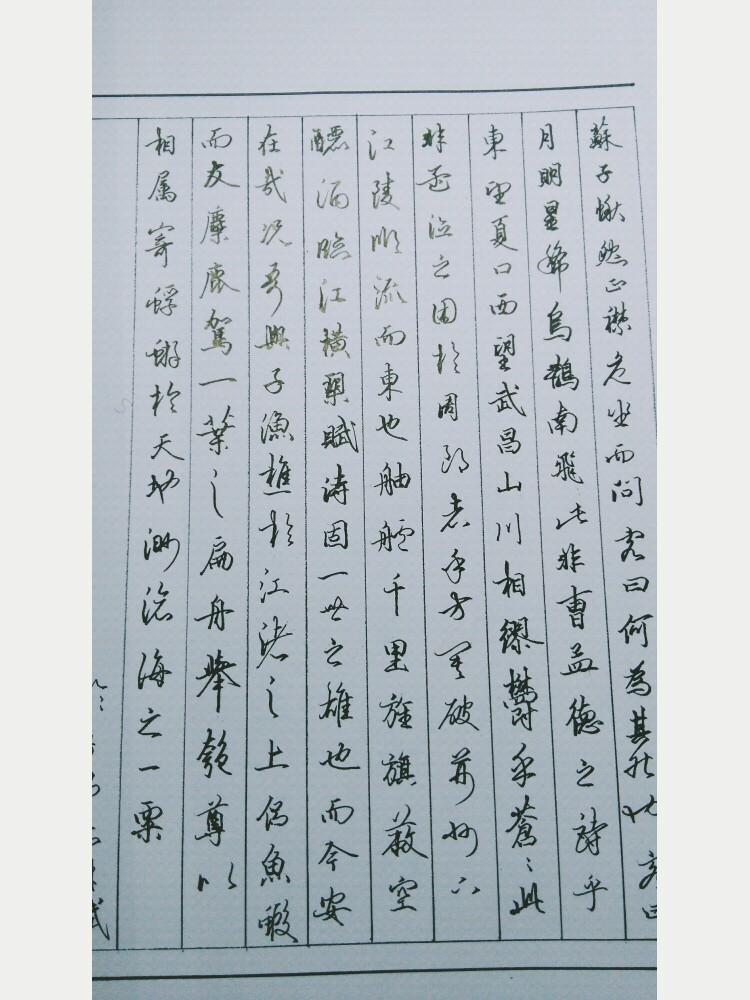 蘇子愀然正襟危坐而問客曰何為其然也客曰
月明星稀烏鵲南飛此非曹孟德之詩乎
東望夏口西望武昌山川相繆鬱乎蒼々此
非孟德之困於周郎者乎方其破荊州下
江陵順流而東也舳艫千里旌旗蔽空
釃酒臨江橫槊賦詩固一世之雄也而今安
在哉況吾與子漁樵於江渚之上侶魚蝦
而友麋鹿駕一葉之扁舟舉匏尊以
相属寄蜉蝣於天地渺滄海之一粟